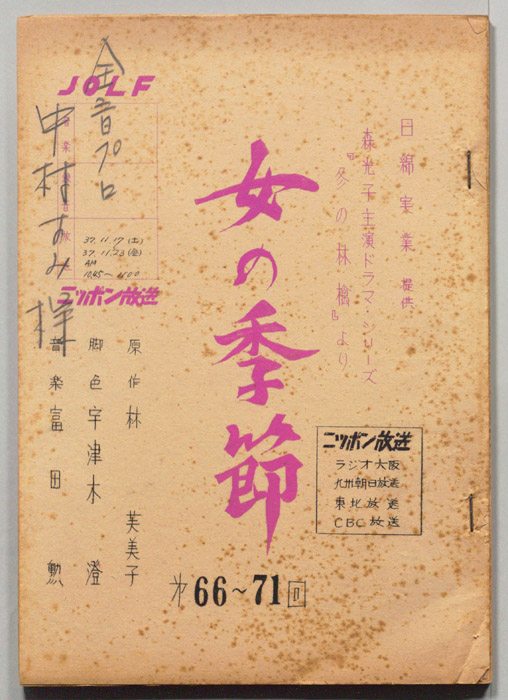 日綿実業 提供
森光子主演ドラマ・シリーズ
『冬の林檎』より
女の季節
オ66～71回
ニッポン放送
ラジオ大阪
九州朝日放送
東北放送
CBC放送
原作 林 芙美子
脚色 宇津木 澄
音楽 冨田 勲
JOLF
37.11.17(土)
37.11.23(金)
AM
10.45～11.00
ニッポン放送
全音プロ
中村すみ子様